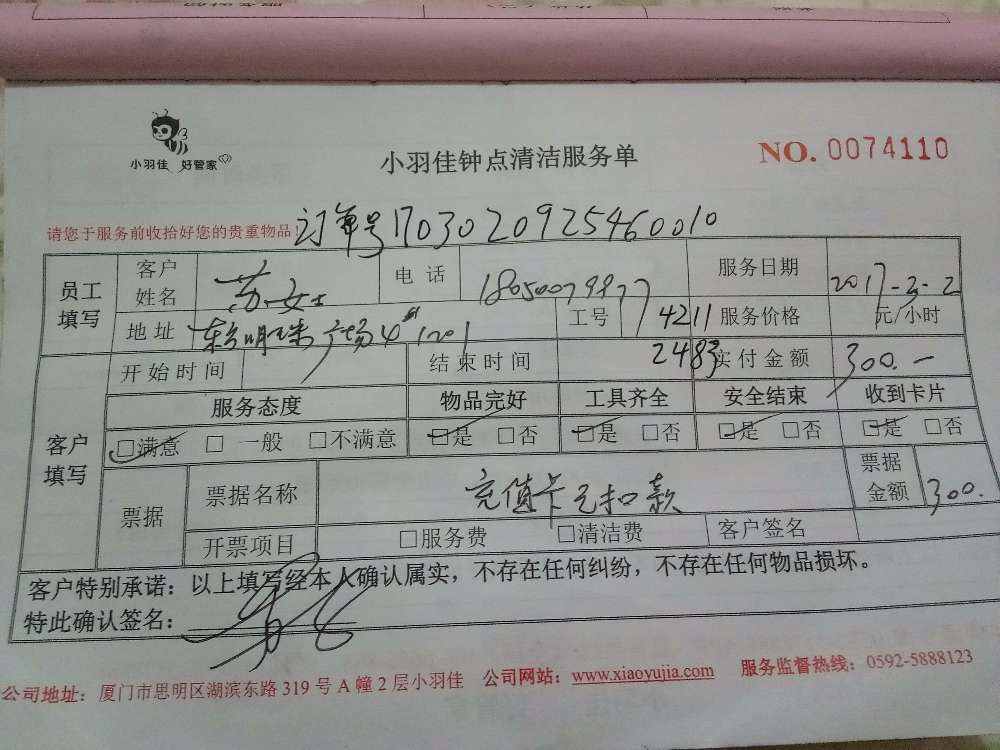 小羽佳 好管家
小羽佳钟点清洁服务单
NO. 0074110
请您于服务前收拾好您的贵重物品!
订单号1703020925460010
员工填写 客户姓名 苏女士 电话 18050079877 服务日期 2017-3-2
地址 明珠广场 1201 工号 4211 服务价格 元/小时
开始时间 结束时间 2483 实付金额 300.-
客户填写 服务态度 物品完好 工具齐全 安全结束 收到卡片
□满意 □一般 □不满意 □是 □否 □是 □否 □是 □否 □是 □否
票据 票据名称 充值卡已扣款 票据金额 300.
开票项目 □服务费 □清洁费 客户签名
客户特别承诺：以上填写经本人确认属实，不存在任何纠纷，不存在任何物品损坏。
特此确认签名：
公司地址：厦门市思明区湖滨东路 319 号 A 幢 2 层小羽佳 公司网站：www.xiaoyujia.com 服务监督热线：0592-5888123